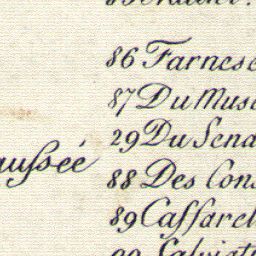 86 Farnese
87 Du Muse
29 Du Sena
aussée
88 Des Cons
89 Caffarel